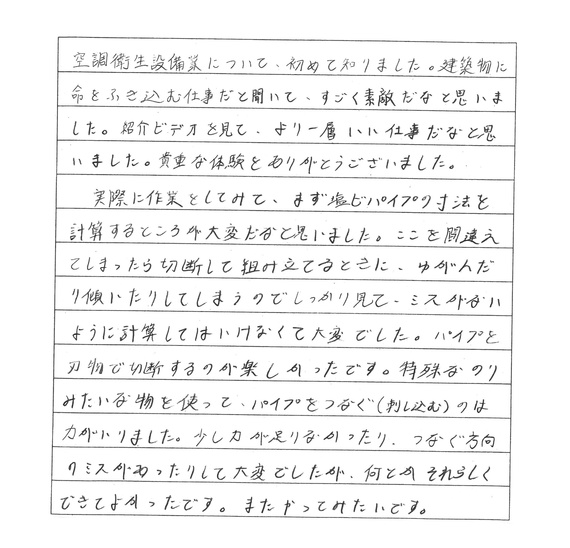 空調衛生設備業について、初めて知りました。建築物に
命をふき込む仕事だと聞いて、すごく素敵だなと思いま
した。紹介ビデオを見て、より一層いい仕事だなと思
いました。貴重な体験をありがとうございました。
実際に作業をしてみて、まず塩ビパイプの寸法を
計算するところが大変だなと思いました。ここを間違え
てしまったら切断して組み立てるときに、ゆがんだ
り傾いたりしてしまうのでしっかり見て、ミスがない
ように計算してはいけなくて大変でした。パイプを
刃物で切断するのが楽しかったです。特殊なのり
みたいな物を使って、パイプをつなぐ(刺し込む)のは
力がいりました。少し力が足りなかったり、つなぐ方向
のミスがあったりして大変でしたが、何とかそれらしく
できてよかったです。またやってみたいです。